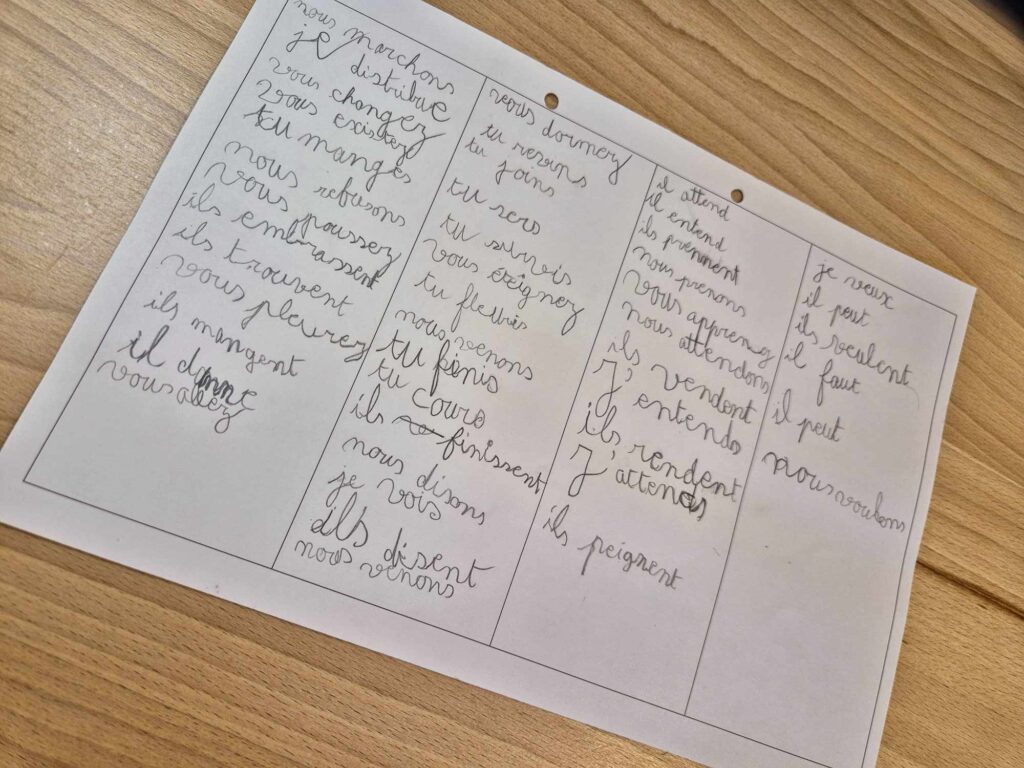 nous marchons
je distribue
vous changez
vous existez
tu manges
nous refusons
vous poussez
ils embrassent
ils trouvent
vous pleurez
ils mangent
il donne
vous allez
vous dormez
tu reviens
tu joins
tu sers
tu survis
vous éteignez
tu fleuris
nous venons
tu finis
tu cours
ils finissent
nous disons
je vois
ils disent
nous venons
il attend
il entend
ils prennent
nous prenons
vous apprenez
nous attendons
ils vendent
J'entends
ils rendent
J'attends
ils peignent
je veux
il peut
ils veulent
il faut
il peut
nous voulons